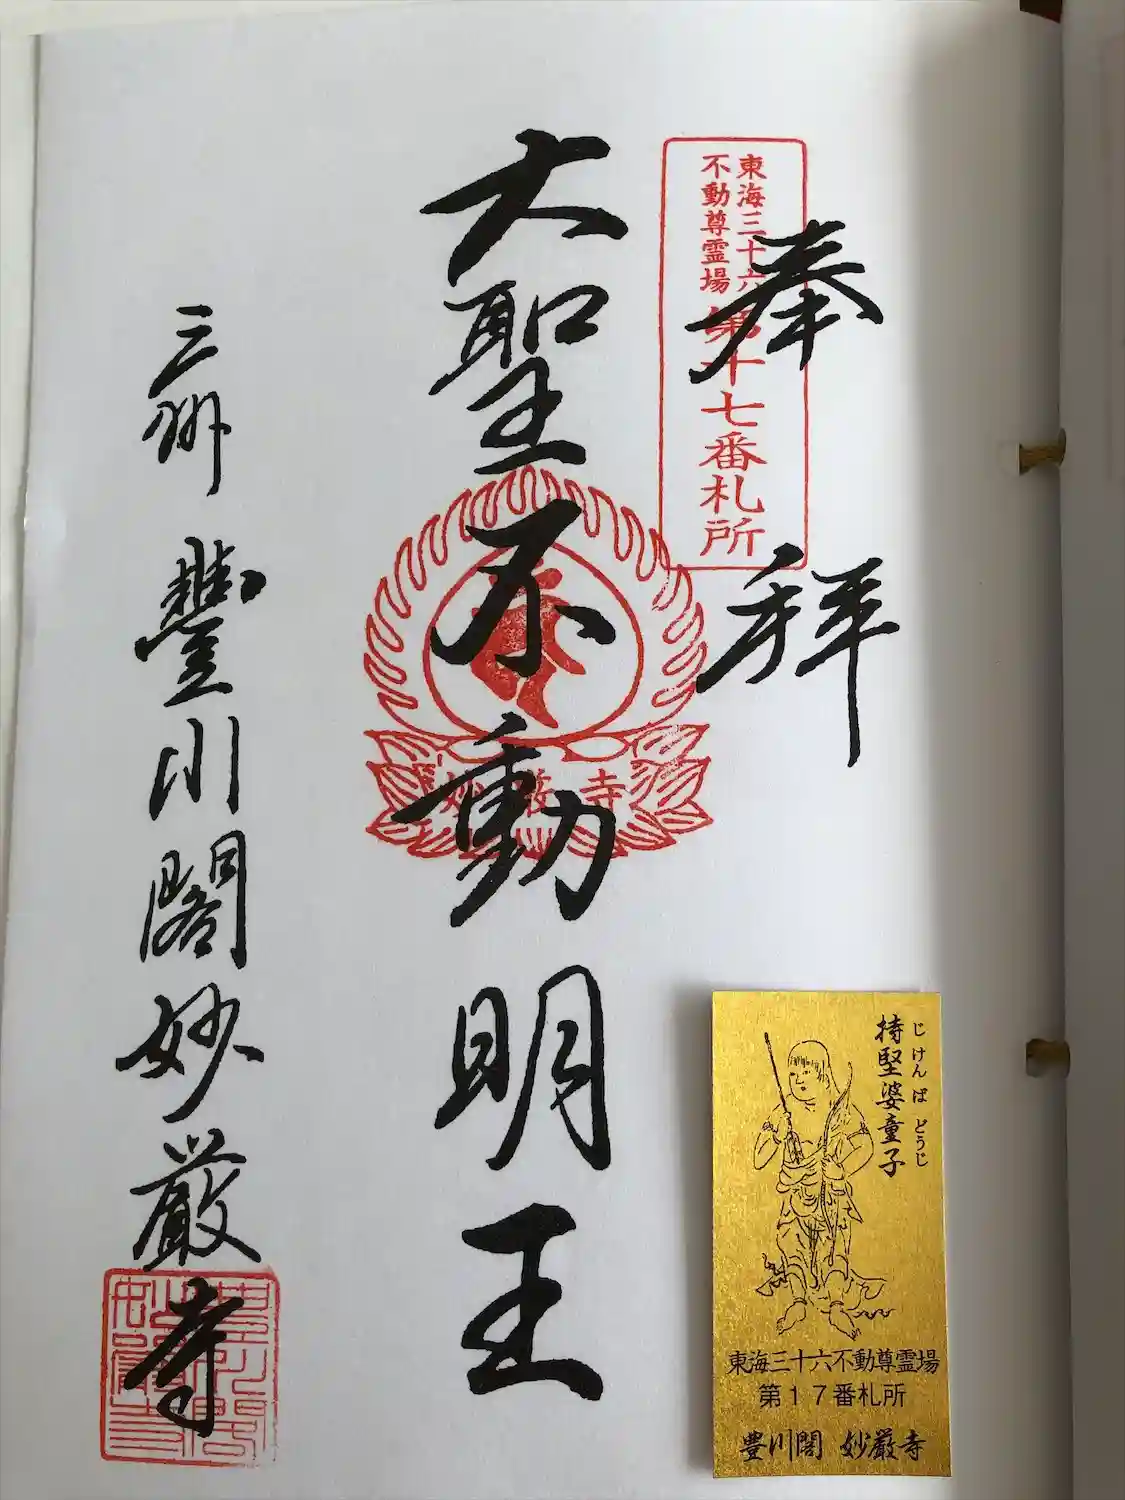 奉拝
東海三十六
不動尊霊場
第十七番札所
大聖不動明王
妙厳寺
三州 豊川閣妙厳寺
持堅婆童子
じけんばどうじ
東海三十六不動尊霊場
第17番札所
豊川閣 妙厳寺